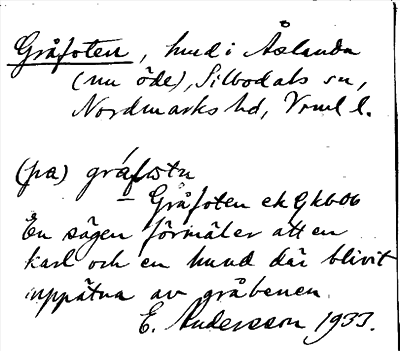 Gråfoten, hmd i Åslanda
(nu öde), Silbodals sn,
Nordmarks hd, Vrml l.
(pa)
Gråfoten ek Gkb06
En sägen förmäler att en
karl och en hund där blivit
uppätna av gråbenen.
E. Andersson 1933.